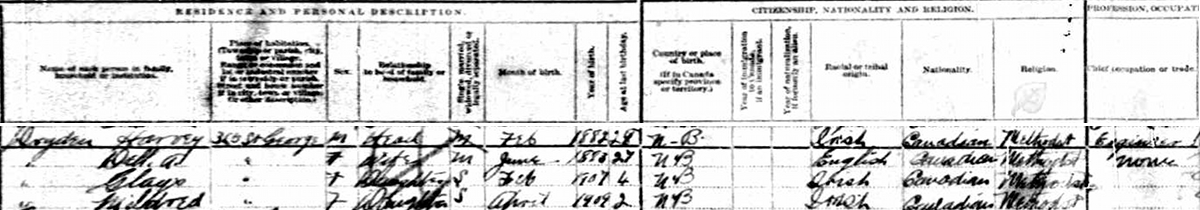 RESIDENCE AND PERSONAL DESCRIPTION. CITIZENSHIP, NATIONALITY AND RELIGION. PROFESSION, OCCUPAT
Name of each person in family, household or institution.
Place of habitation. (Township or parish, city, town or village.
Sex.
Relationship to head of family or household.
Single, married, widowed, divorced or legally separated.
Month of birth.
Year of birth.
Age at last birthday.
Country or place of birth. (If in Canada specify province or territory.)
Year of immigration to Canada, if an immigrant.
Year of naturalization, if formerly an alien.
Racial or tribal origin.
Nationality.
Religion.
Chief occupation or trade
Dryden Harvey 365 St George M Head M Feb 1882 28 N-B Irish Canadian Methodist Engineer
" " F Wife M June 27 NB English Canadian Methodist none
" " F Daughter S Feb 1907 4 NB Irish Canadian Methodist
" Mildred " F Daughter S April 1909 2 NB Irish Canadian Methodist